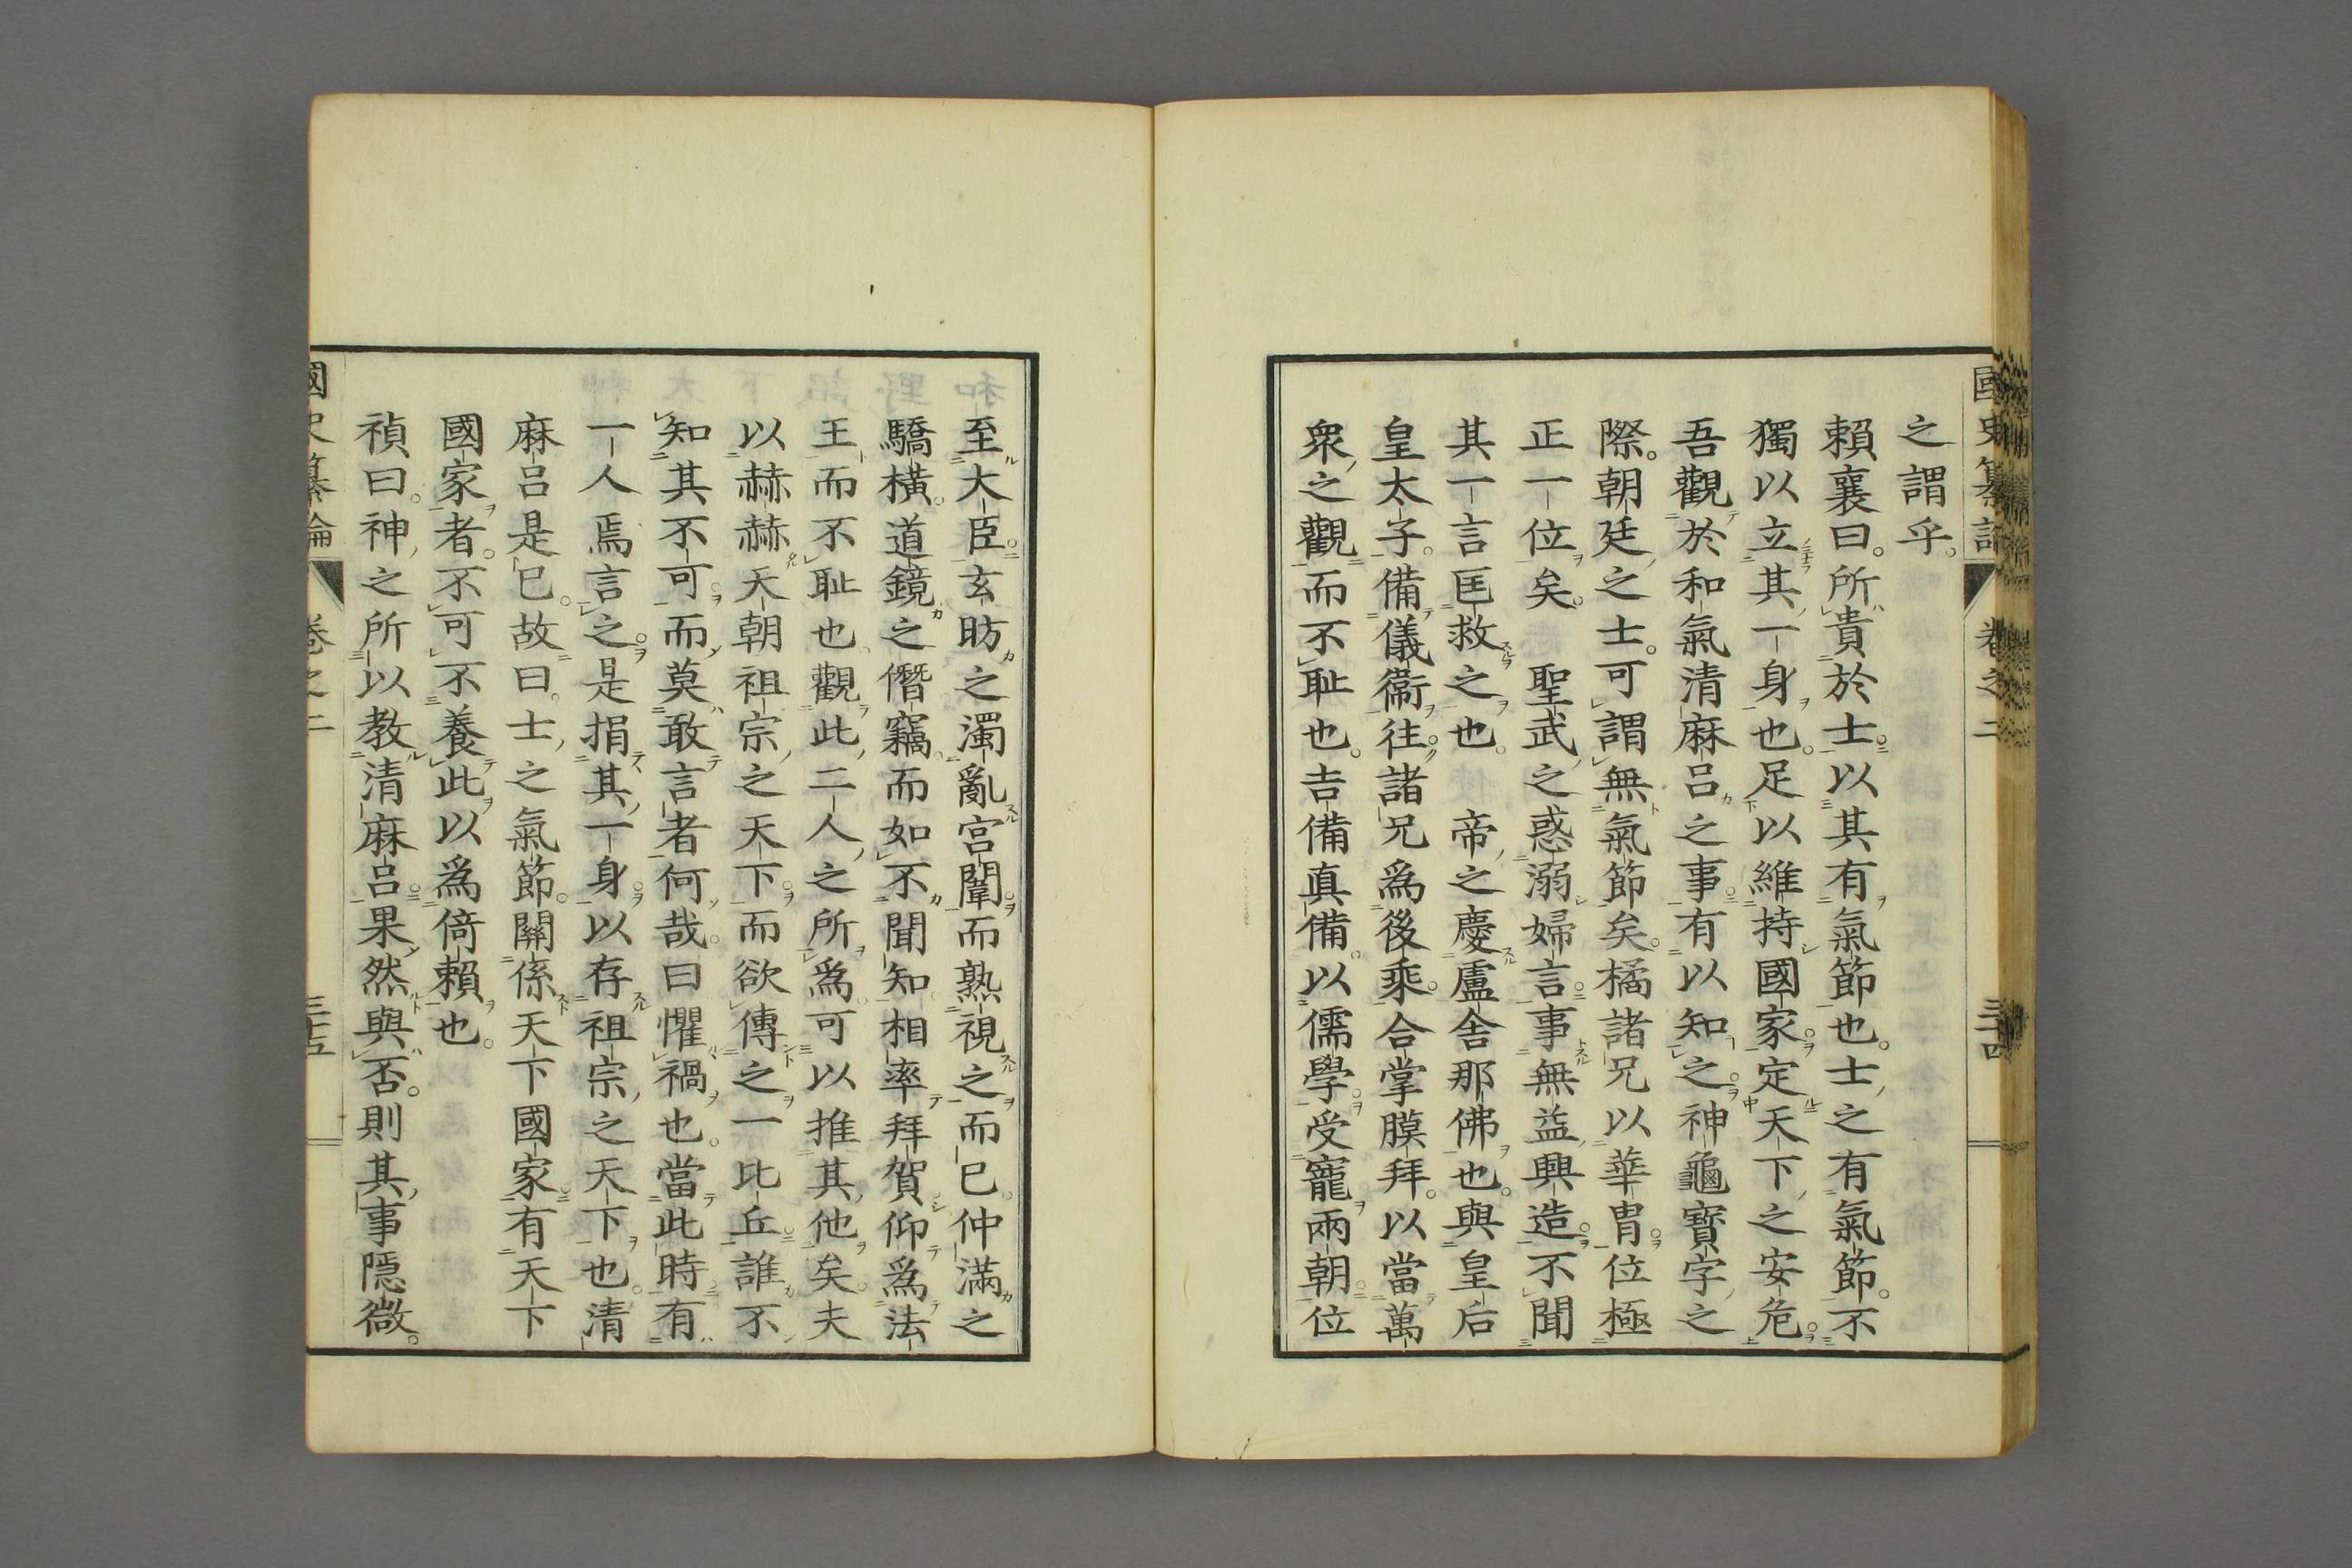 國史纂論 卷之二 三十四
之謂乎。
賴襄曰。所貴於士。以其有氣節也。士之有氣節。不
獨以立其一身也。足以維持國家。定天下之安危。
吾觀於和氣清麻呂之事。有以知之。神龜寶字之
際。朝廷之士。可謂無氣節矣。橘諸兄以華冑。位極
正一位矣。 聖武之惑溺婦言。事無益興造。不聞
其一言匡救之也。 帝之慶盧舍那佛也。與皇后
皇太子。備儀衞往。諸兄爲後乘。合掌膜拜。以當萬
衆之觀而不耻也。吉備真備。以儒學。受寵兩朝。位
至大臣。玄昉之濁亂宮闈。而熟視之而已。仲滿之
驕橫。道鏡之僭竊。而如不聞知。相率拜賀。仰爲法
王而不耻也。觀此二人之所爲。可以推其他矣。夫
以赫赫天朝祖宗之天下。而欲傳之一比丘。誰不
知其不可。而莫敢言者何哉。曰懼禍也。當此時有
一人焉言之。是捐其一身。以存祖宗之天下也。清
麻呂是已。故曰。士之氣節。關係天下國家。有天下
國家者。不可不養此以爲倚賴也。
禎曰。神之所以教清麻呂。果然與否。則其事隱微。
國史纂論 卷之二 三十五